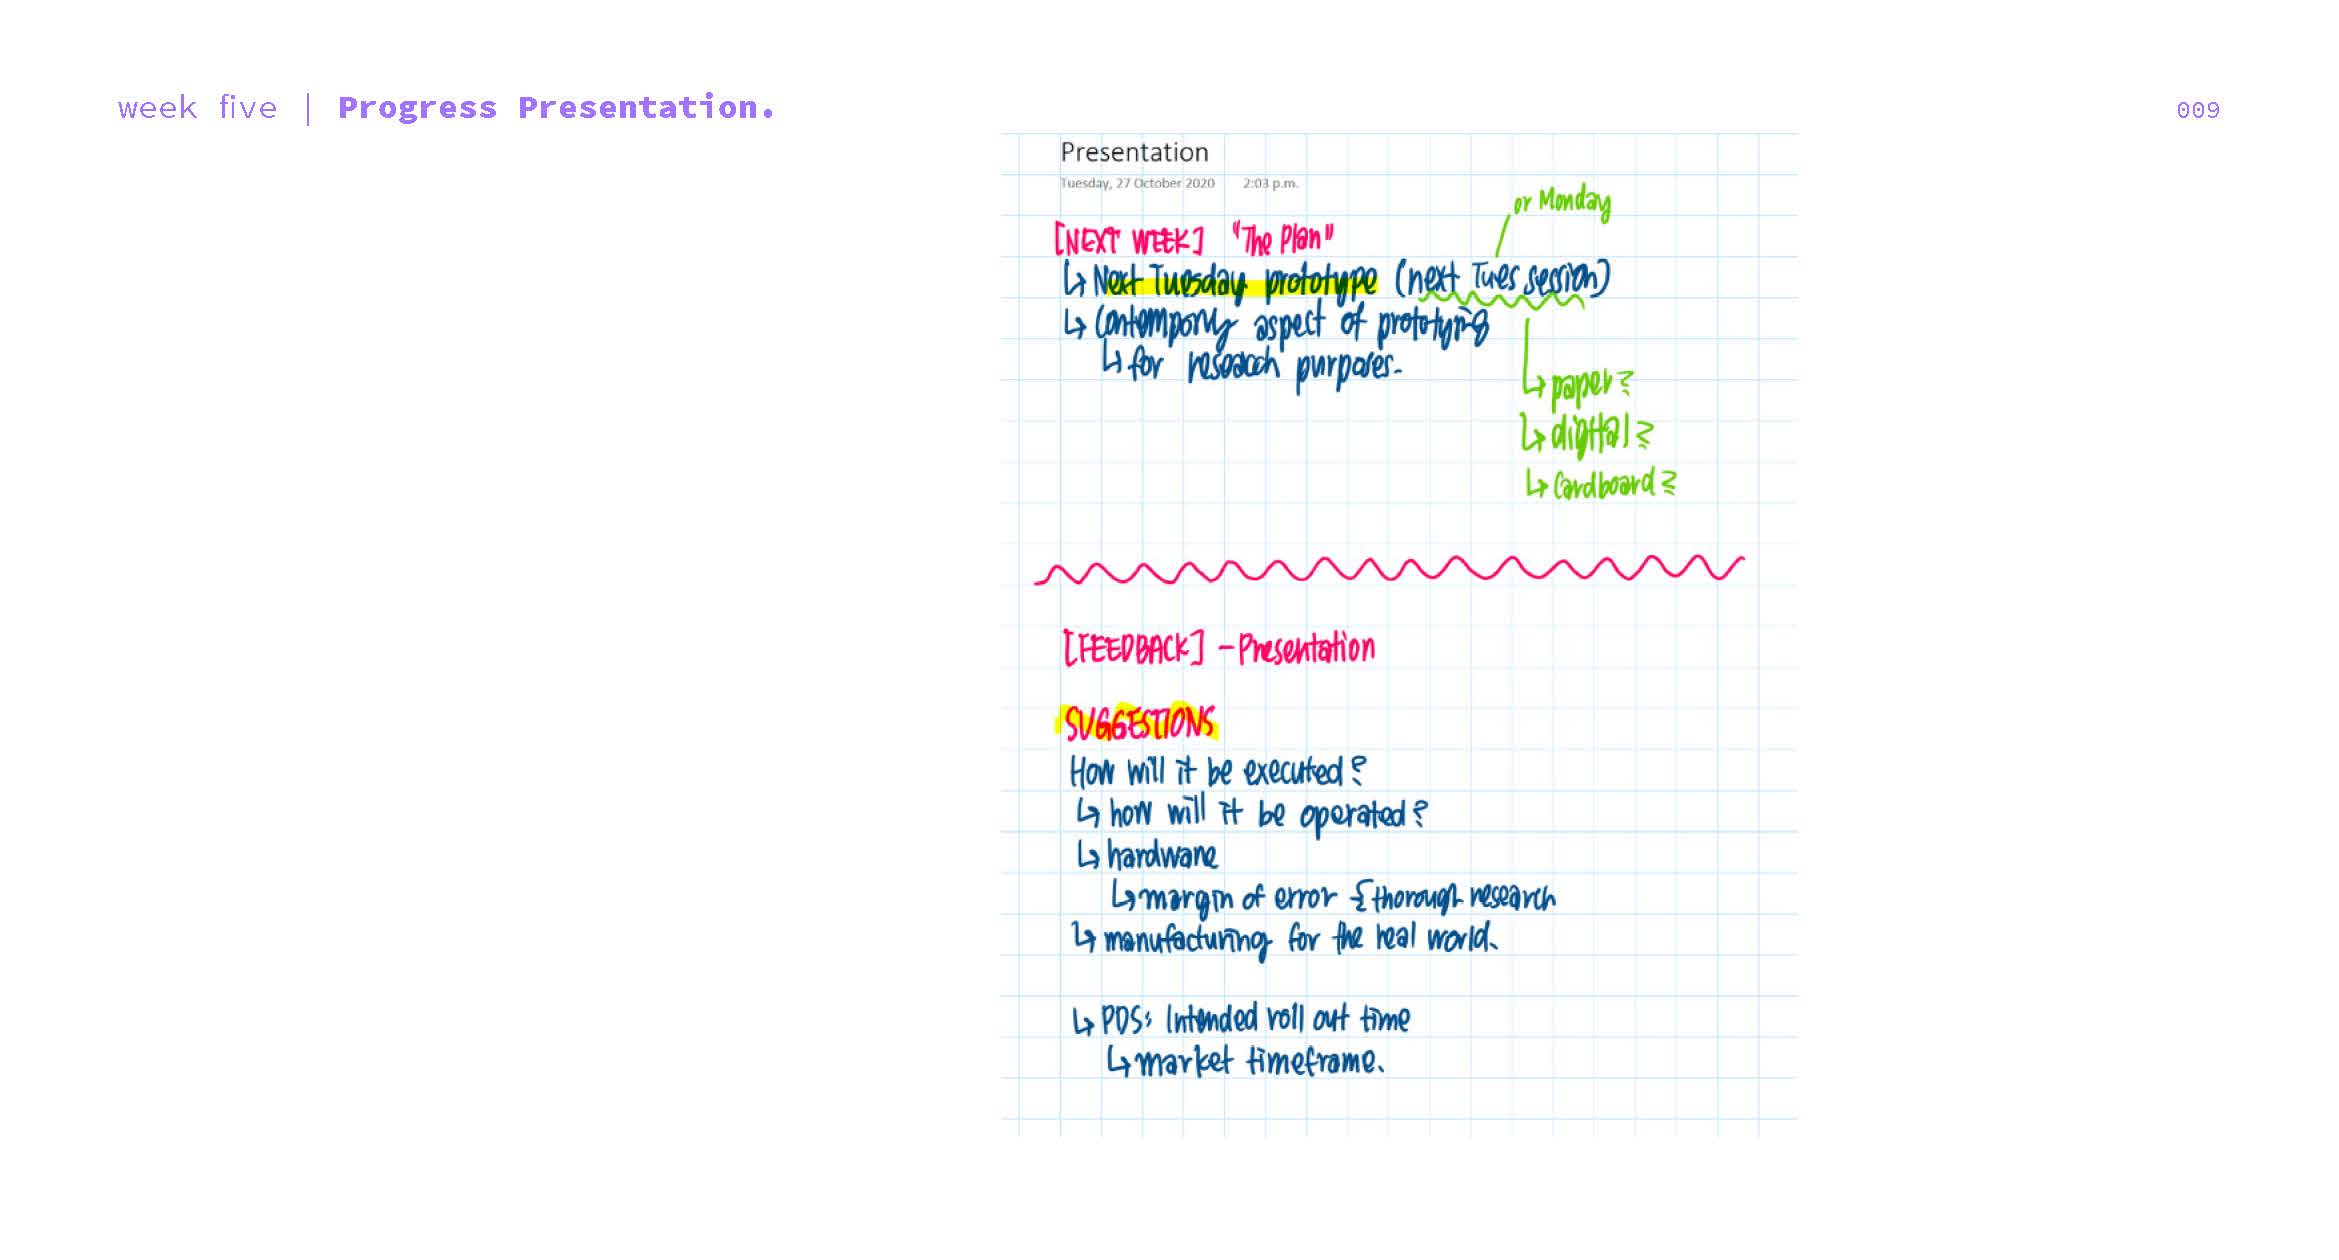 week five | Progress Presentation.
009
Presentation
Tuesday, 27 October 2020 2:03 p.m.
or Monday
[NEXT WEEK] "The Plan"
↳ Next Tuesday prototype (next Tues session)
↳ Contempory aspect of prototyping
↳ for research purposes.
↳ paper?
↳ digital?
↳ Cardboard?
[FEEDBACK] - Presentation
SUGGESTIONS
How will it be executed?
↳ how will it be operated?
↳ hardware
↳ margin of error { thorough research
↳ manufacturing for the real world.
↳ PDS: Intended roll out time
↳ market timeframe.